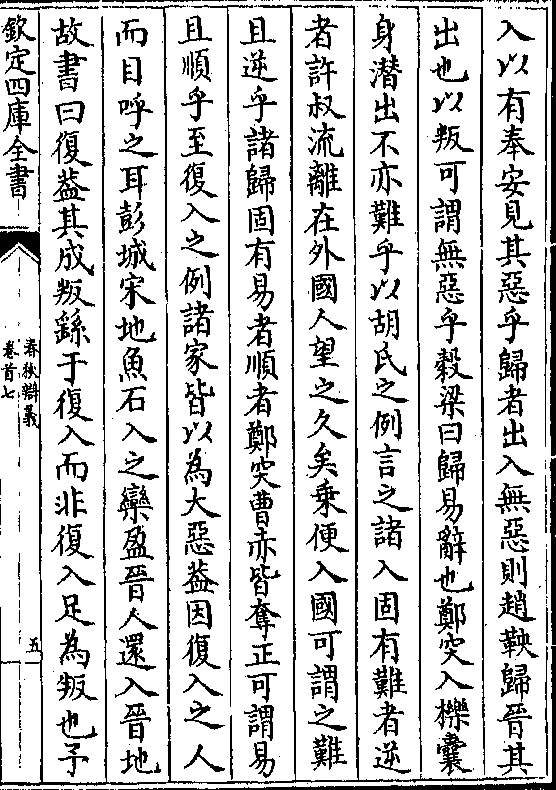 入以有奉安見其惡乎歸者出入無惡則趙鞅歸晉其
出也以叛可謂無惡乎穀梁曰歸易辭也鄭突入櫟囊
身潜出不亦難乎以胡氏之例言之諸入固有難者逆
者許叔流離在外國人望之久矣乗便入國可謂之難
且逆乎諸歸固有易者順者鄭突曹赤皆奪正可謂易
且順乎至復入之例諸家皆以為大惡葢因復入之人
而目呼之耳彭城宋地魚石入之欒盈晉人還入晉地
故書曰復葢其成叛繇于復入而非復入足為叛也予
欽定四庫全書
春秋辯義
卷首七
五